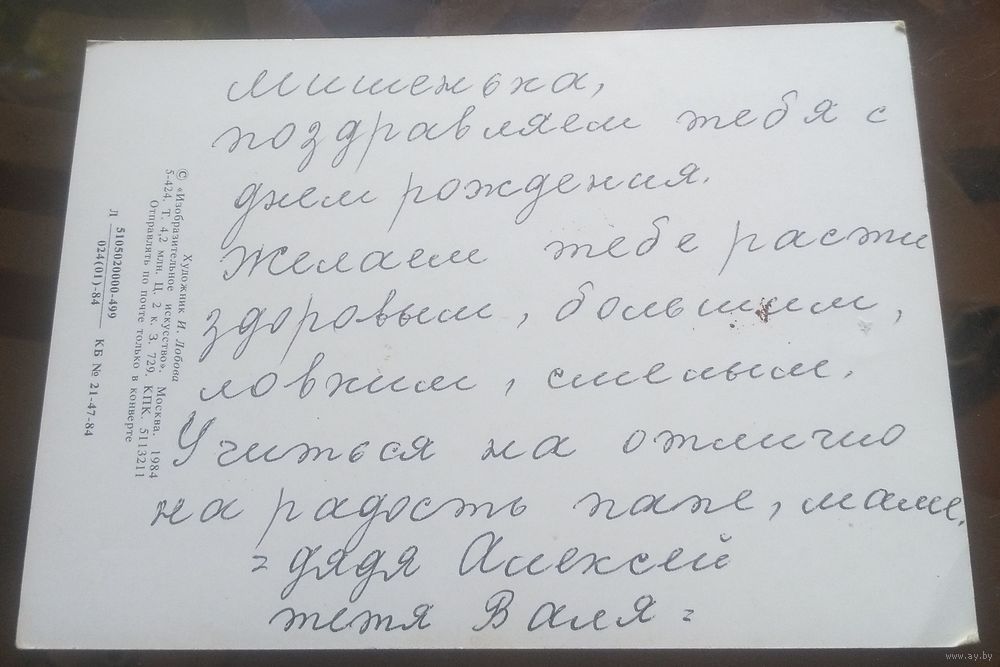 Мишенька,
поздравляем тебя с
днем рождения.
Желаем тебе расти
здоровым, большим,
ловким, смелым.
Учиться на отлично
на радость папе, маме.
= дядя Алексей
тетя Валя =
Художник И. Лобова
© «Изобразительное искусство». Москва. 1984
5-424. Т. 4,2 млн. Ц. 2 к. З. 729. КПК. 5113211
Отправлять по почте только в конверте
Л 5105020000-499
024(01)-84 КБ № 21-47-84
www.ay.by